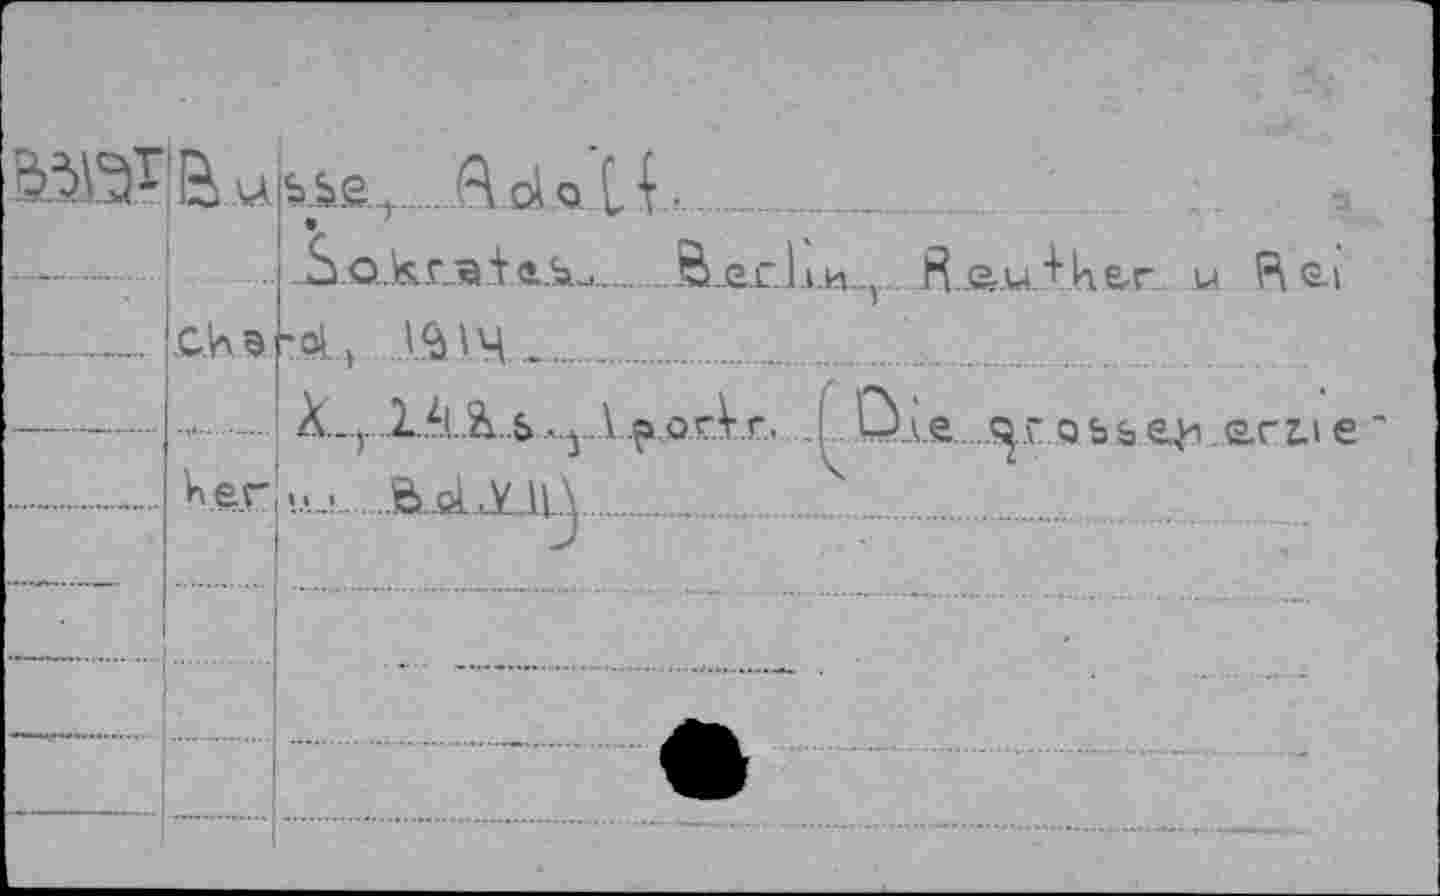 Busse, Adolf.
Sokrates. Berlin, Reuther u Rei
chard, 1914.
X, 248 s., 1 portr. (Die grossen erzie-
her.. Bd.VII)